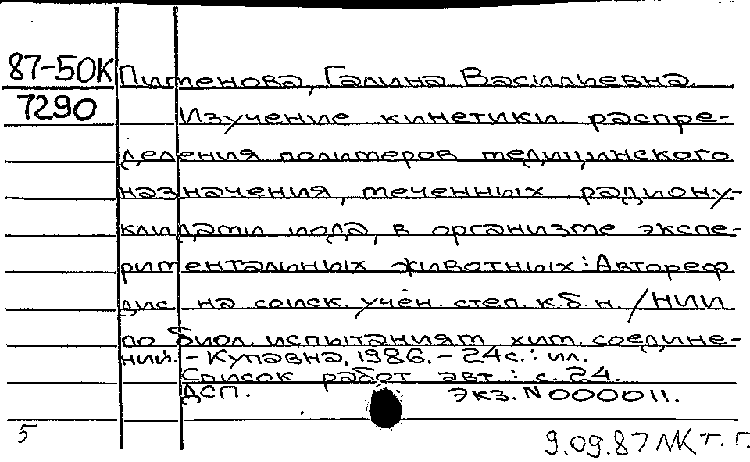 87-50К Пименова, Галина Васильевна
7290 Изучение кинетики распре-
деления полимеров медицинского
назначения, меченных радиону-
клидами иода, в организме экспе-
риментальных животных: Автореф
дис. на соиск. учен. степ. к.б.н. / НИИ
по биол. испытаниям хим. соедине-
ний. - Купавна, 1986. - 24 с.: ил.
Список работ авт.: с. 24.
ДСП. экз. N 000011.
5 9.09.87 МК т. г.